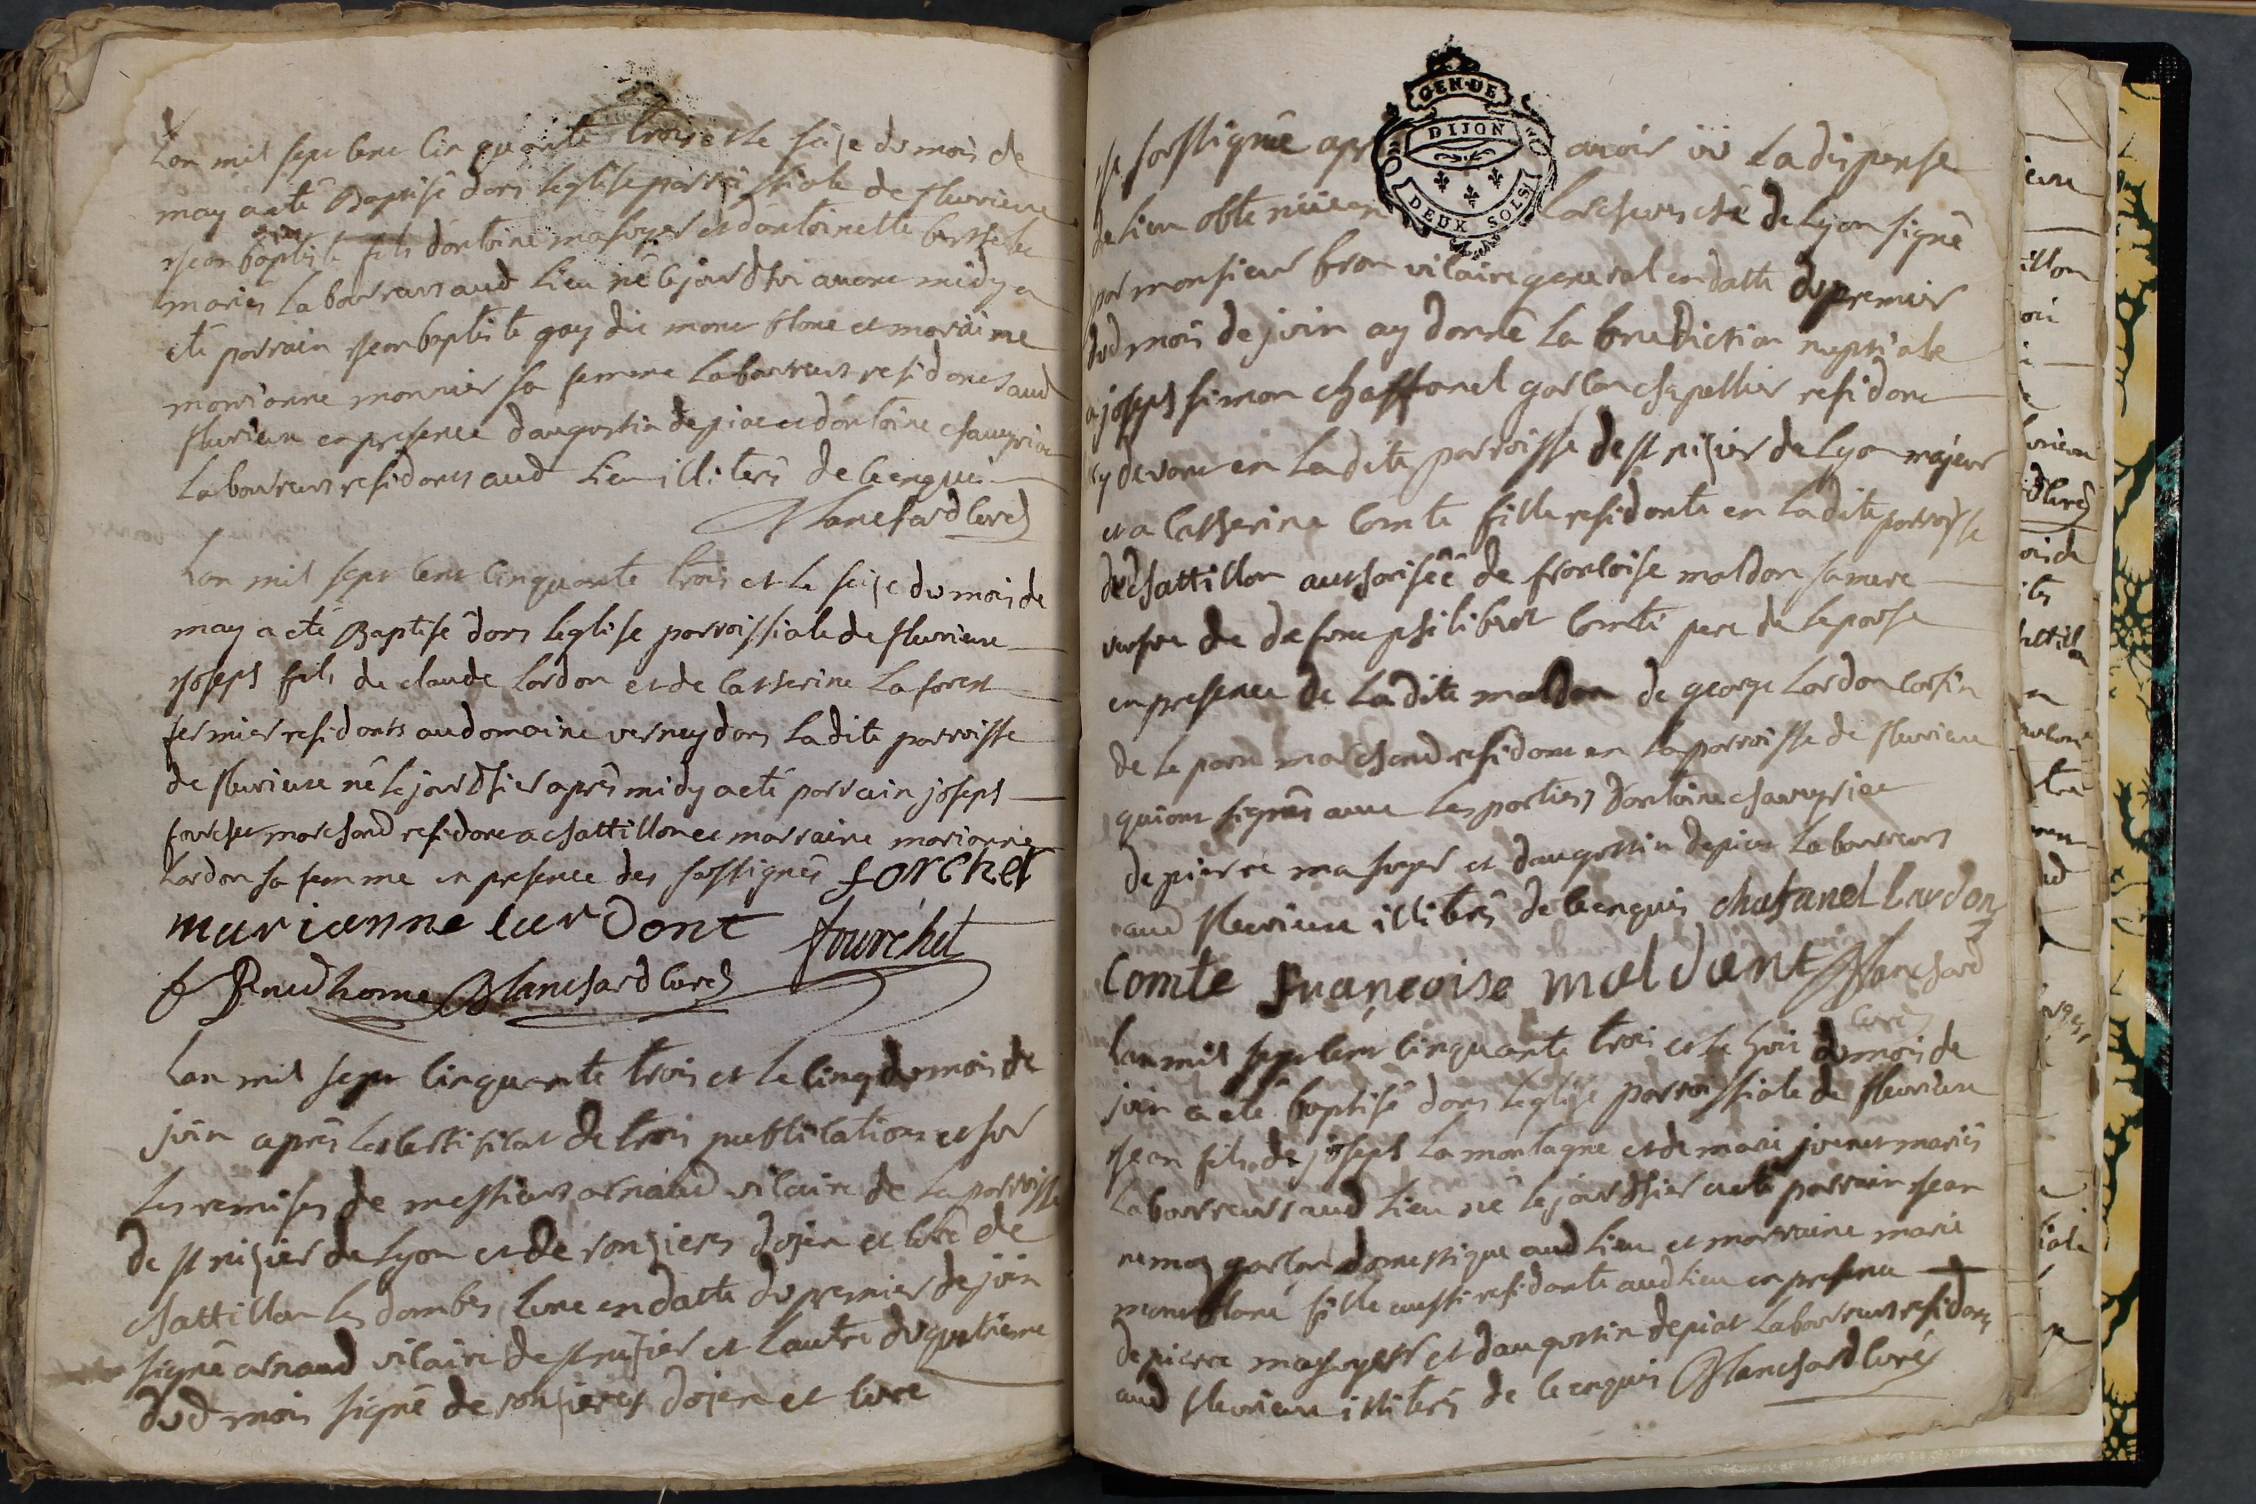 Lan mil sept cent cinquante trois et le seise du mois de
may a eté Baptisé dans leglise parroissiale de fleurieux
Jean baptiste fils dantoine masuyer et dantoinette
mariés laboureurs aud lieu né cejourdhui avant midy a
eté parrain Jean baptiste gay dit mont blanc et maraine
marianne monnier sa femme laboureurs residents aud
fleurieux en presence daugustin depiat et dantoine
laboureurs residents aud lieu illiterés de ce enquis
Blanchard curé
Lan mil sept cent cinquante trois et le seise du mois de
may a eté Baptisé dans leglise parroissiale de fleurieux
Joseph fils de claude Lardon et de catherine Laforest
fermier residents au domaine verney dans ladite parroisse
de fleurieux né le jour dhier aprés midy a eté parrain joseph
fourchet marchand resident a chattillon et marraine marianne
Lardon sa femme en presence des soussignés forchet
marianne lardont fourchet
Prudhome Blanchard curé
Lan mil sept cinquante trois et le cinq du mois de
juin aprés les certificat de trois publications et sur
les remises de messieurs arnaud vicaire de la parroisse
de st nizier de Lyon et de ronzieres dojen et curé de
chattillon les dombes, lune en datte du premier de juin
signé arnaud vicaire de st nizier et lautre du quatrieme
dud mois signé de ronzieres dojen et curé
je soussignée apr avoir vü la dispense
de lieu obtenüe de Larcheveché de Lyon signé
par monsieur bron vicaire general en datte du premier
dud mois de juin ay donné la benediction nuptiale
a joseph simon chaffanel garcon chapellier resident
cy devant en ladite parroisse de st nizier de Lyon majeur
et a catherine Comte fille residente en ladite parroisse
de chattillon authorisée de francoise maldon sa mere
veufve de defunt philibert Comte pere de lepouse
en presence de ladite maldon de george Lardon cousin
de le marchand resident en la parroisse de fleurieux
qui ont signés avec les parties dantoine
de pierre masuyer et daugustin depiat laboureurs
aud fleurieux illiterés de ce enquis chafanel Lardon
Comte françoise maldant Blanchard
curé
Lan mil sept cent cinquante trois et le huit du mois de
juin a eté baptisé dans leglise parroissiale de fleurieux
Jean fils de joseph Lamontagne et de marie mariés
laboureurs aud lieu né le jour dhier a eté parrain Jean
garcon domestique aud lieu et marraine marie
montblanc fille aussi residente aud lieu en presence
de pierre masuyer et daugustin depiat laboureurs residents
aud fleurieux illiterés de ce enquis Blanchard curé
GEN·DE
DIJON
DEUX SOLS